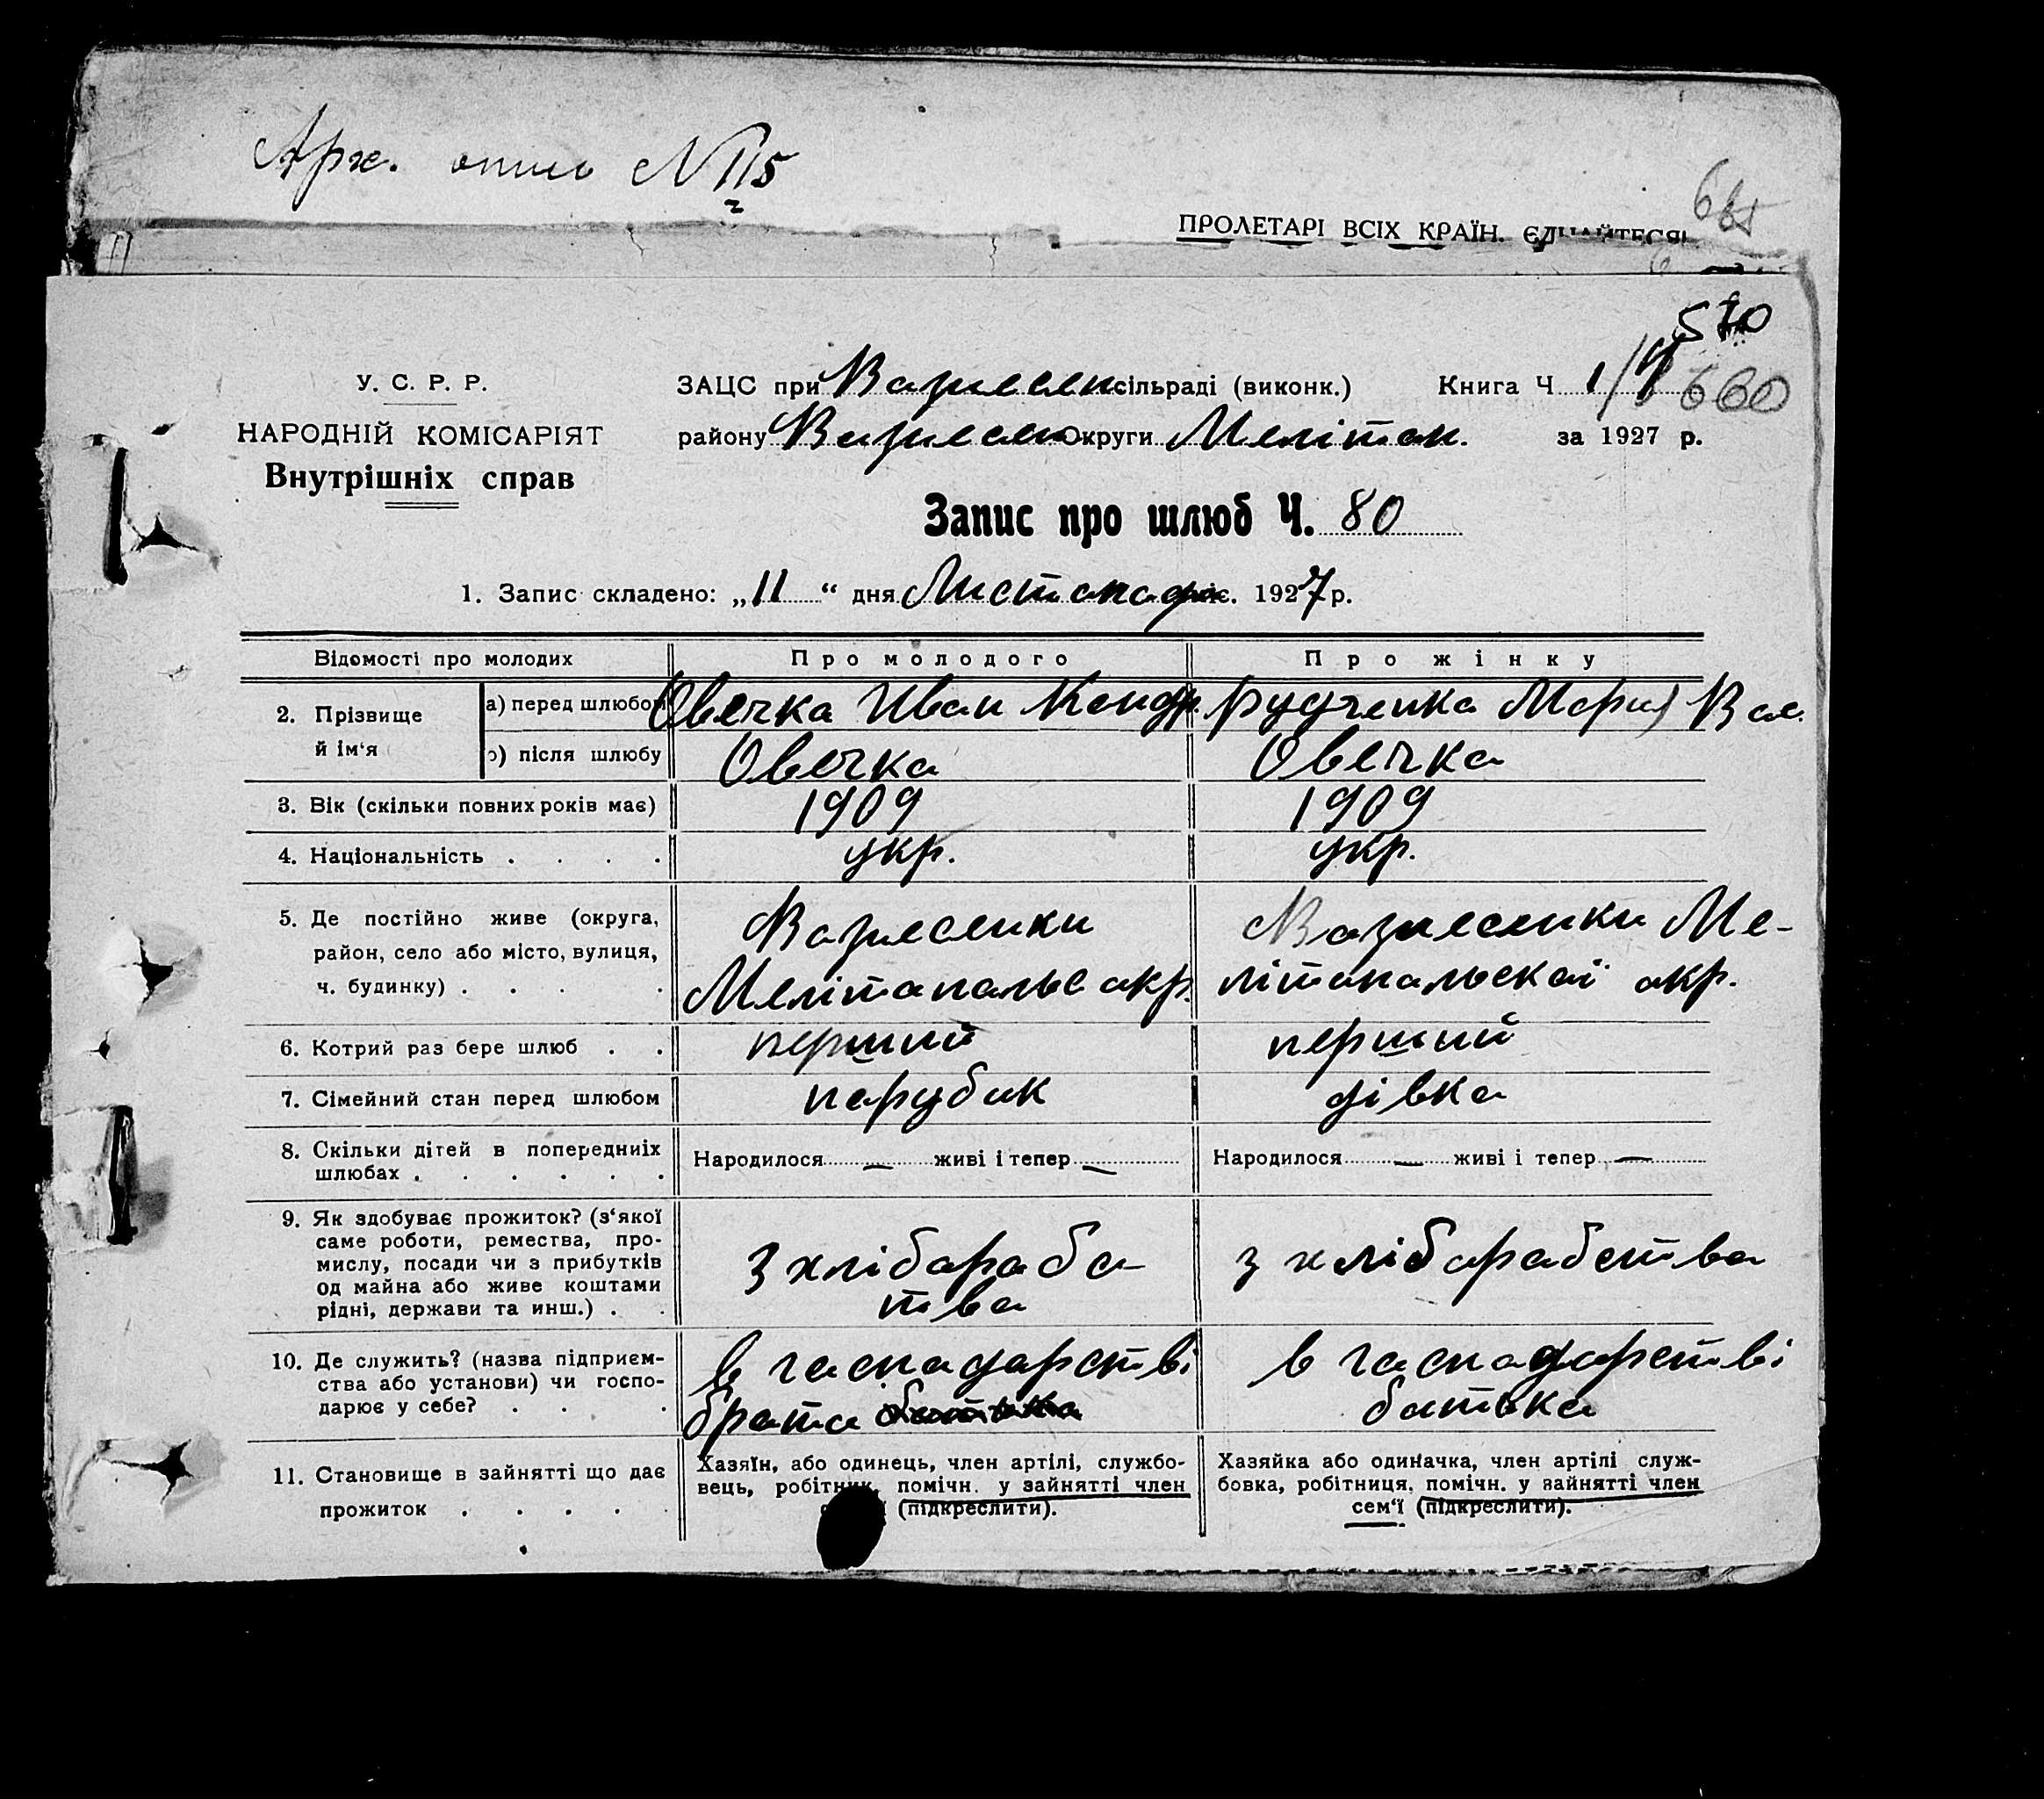 Арх. опись N 115
2
ПРОЛЕТАРІ ВСІХ КРАЇН, ЄДНАЙТЕСЯ!
665
570
У. С. Р. Р.
НАРОДНІЙ КОМІСАРІЯТ
Внутрішніх справ
ЗАЦС при Вазнесен сільраді (виконк.) Книга Ч 1/4 660
району Вазнесен Округи Мелітоп. за 1927 р.
Запис про шлюб Ч. 80
1. Запис складено: „11“ дня Листопада міс. 1927 р.
Відомості про молодих Про молодого Про жінку
2. Прізвище й ім‘я а) перед шлюбом Овечка Иван Кондр. Рудченка Мария Вас.
б) після шлюбу Овечка Овечка
3. Вік (скільки повних років має) 1909 1909
4. Національність . . . . укр. укр.
5. Де постійно живе (округа, Вазнесенки Вазнесенки Ме-
район, село або місто, вулиця,
ч. будинку) . . . . Мелітапальс акр. літапальскаі акр.
6. Котрий раз бере шлюб . . перший перший
7. Сімейний стан перед шлюбом парубак дівка
8. Скільки дітей в попередниіх Народилося — живі і тепер — Народилося — живі і тепер —
шлюбах . . . . . .
9. Як здобуває прожиток? (з‘якої
саме роботи, ремества, про-
мислу, посади чи з прибутків З хлібараба- з хлібарабства
од майна або живе коштами тва
рідні, держави та инш.) . .
10. Де служить? (назва підприєм- в гаспадарстві в гаспадарстві
ства або установи) чи госпо-
дарює у себе? . . . . брата батька батька
11. Становище в зайнятті що дає
прожиток . . . . .
Хазяїн, або одинець, член артілі, службо-
вець, робітник, помічн. у зайнятті член
(підкреслити).
Хазяйка або одиначка, член артілі служ-
бовка, робітниця, помічн. у зайнятті член
сем‘ї (підкреслити).